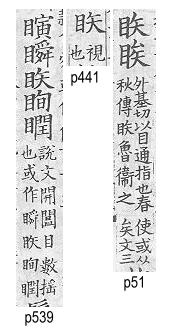 瞚瞬眣眴瞤
說文開闔目數搖
也或作瞬眣眴瞤
p539
眣
視
也
p441
眣
升基切以目通指也春
秋傳眣魯衛之
使或从
矣文三
p51